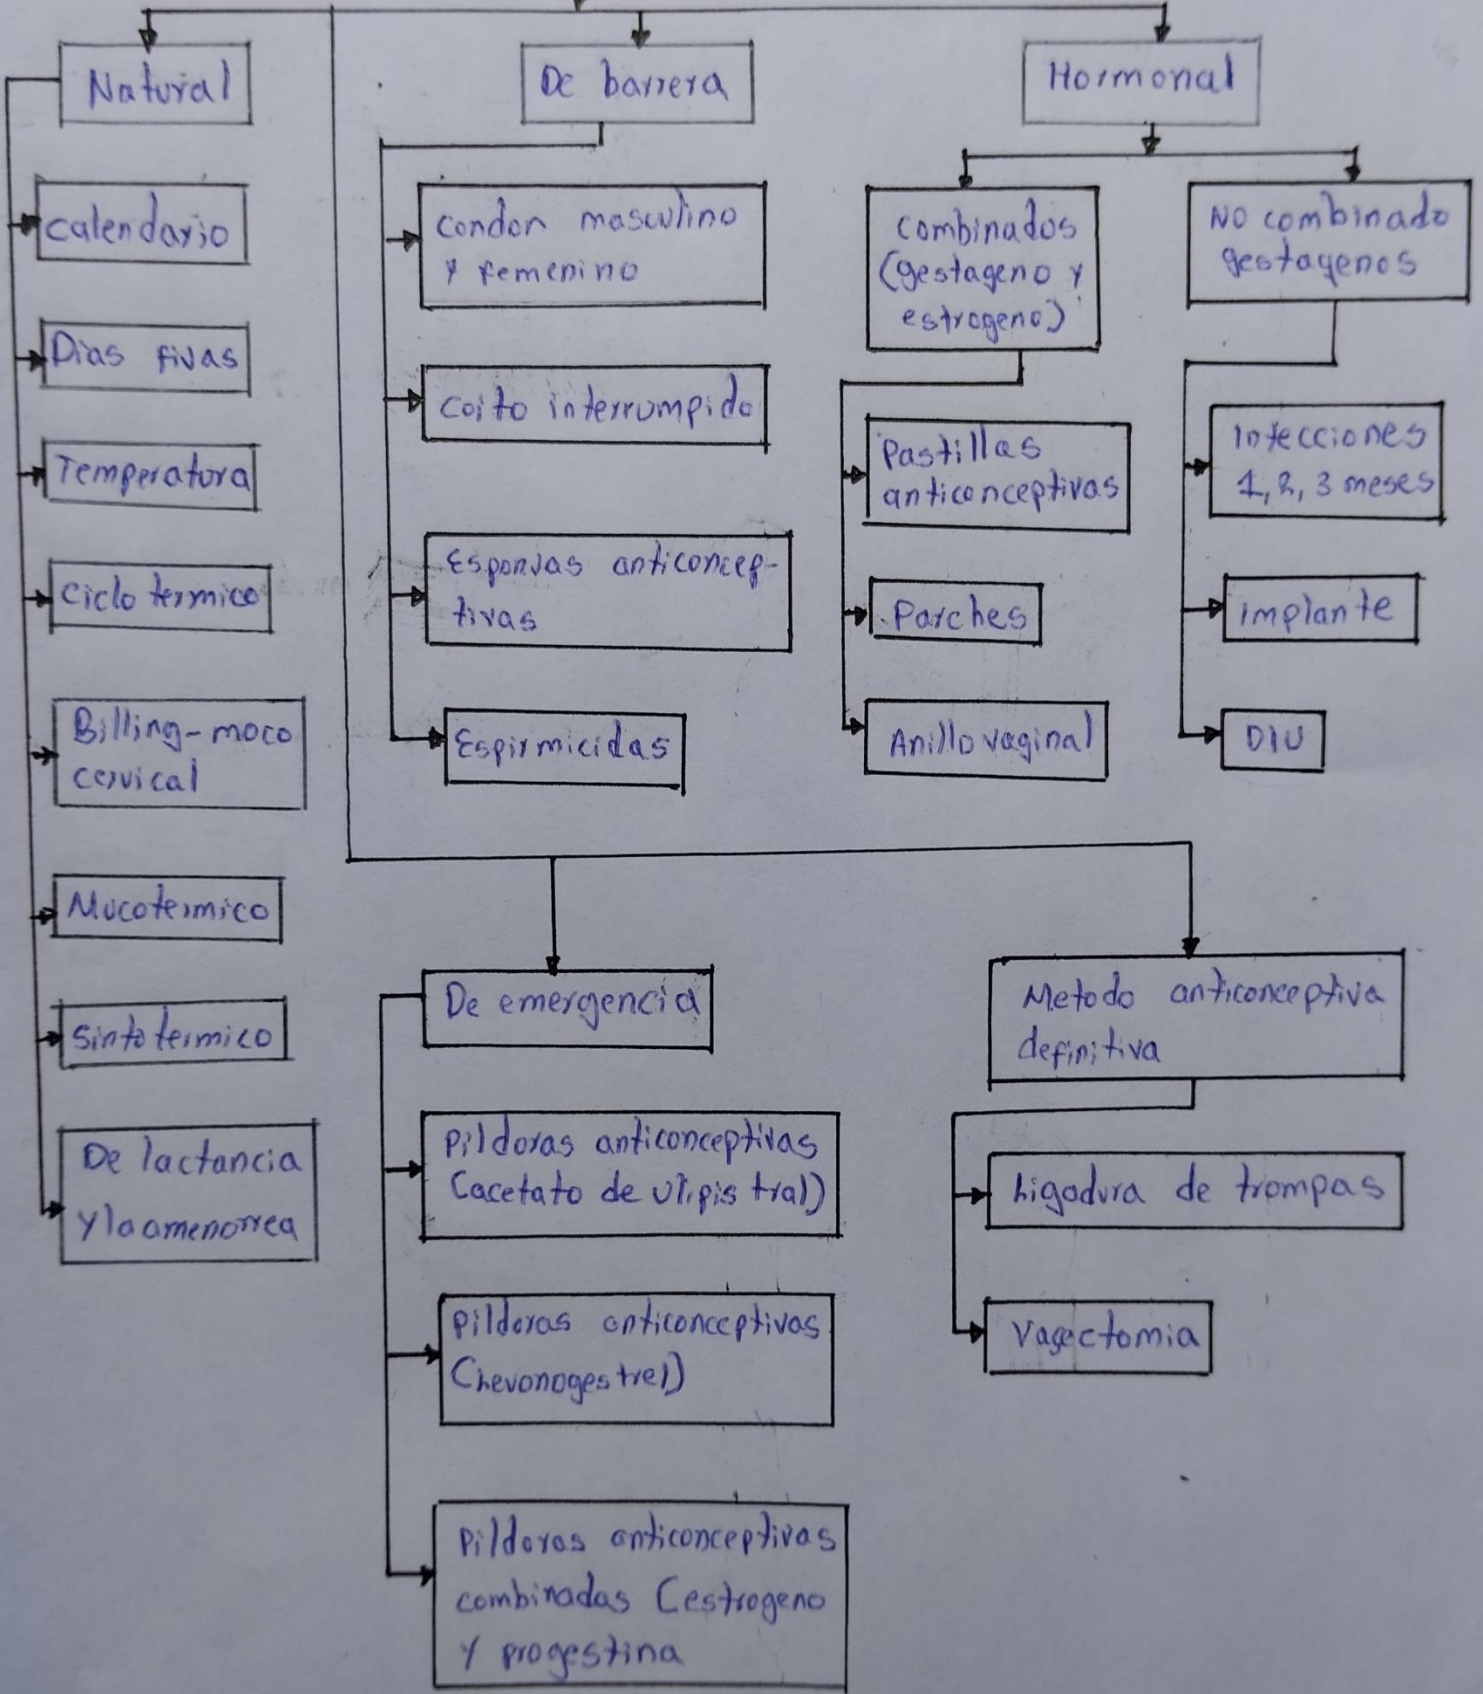 Natural
De barrera
Hormonal
calendario
Dias fivas
Temperatura
ciclo termico
Billing-moco
cervical
Mucotermico
sintotermico
De lactancia
y la amenorrea
condon masculino
y femenino
coito interrumpido
Esponjas anticoncep-
tivas
Espirmicidas
combinados
(gestageno y
estrogeno)
Pastillas
anticonceptivas
Parches
Anillo vaginal
NO combinado
gestagenos
Infecciones
1, 2, 3 meses
implante
DIU
De emergencia
Pildoras anticonceptivas
(acetato de ulipistral)
Pildoras anticonceptivas
(Levonogestrel)
Pildoras anticonceptivas
combinadas (estrogeno
y progestina
Metodo anticonceptiva
definitiva
Ligadura de trompas
Vasectomia